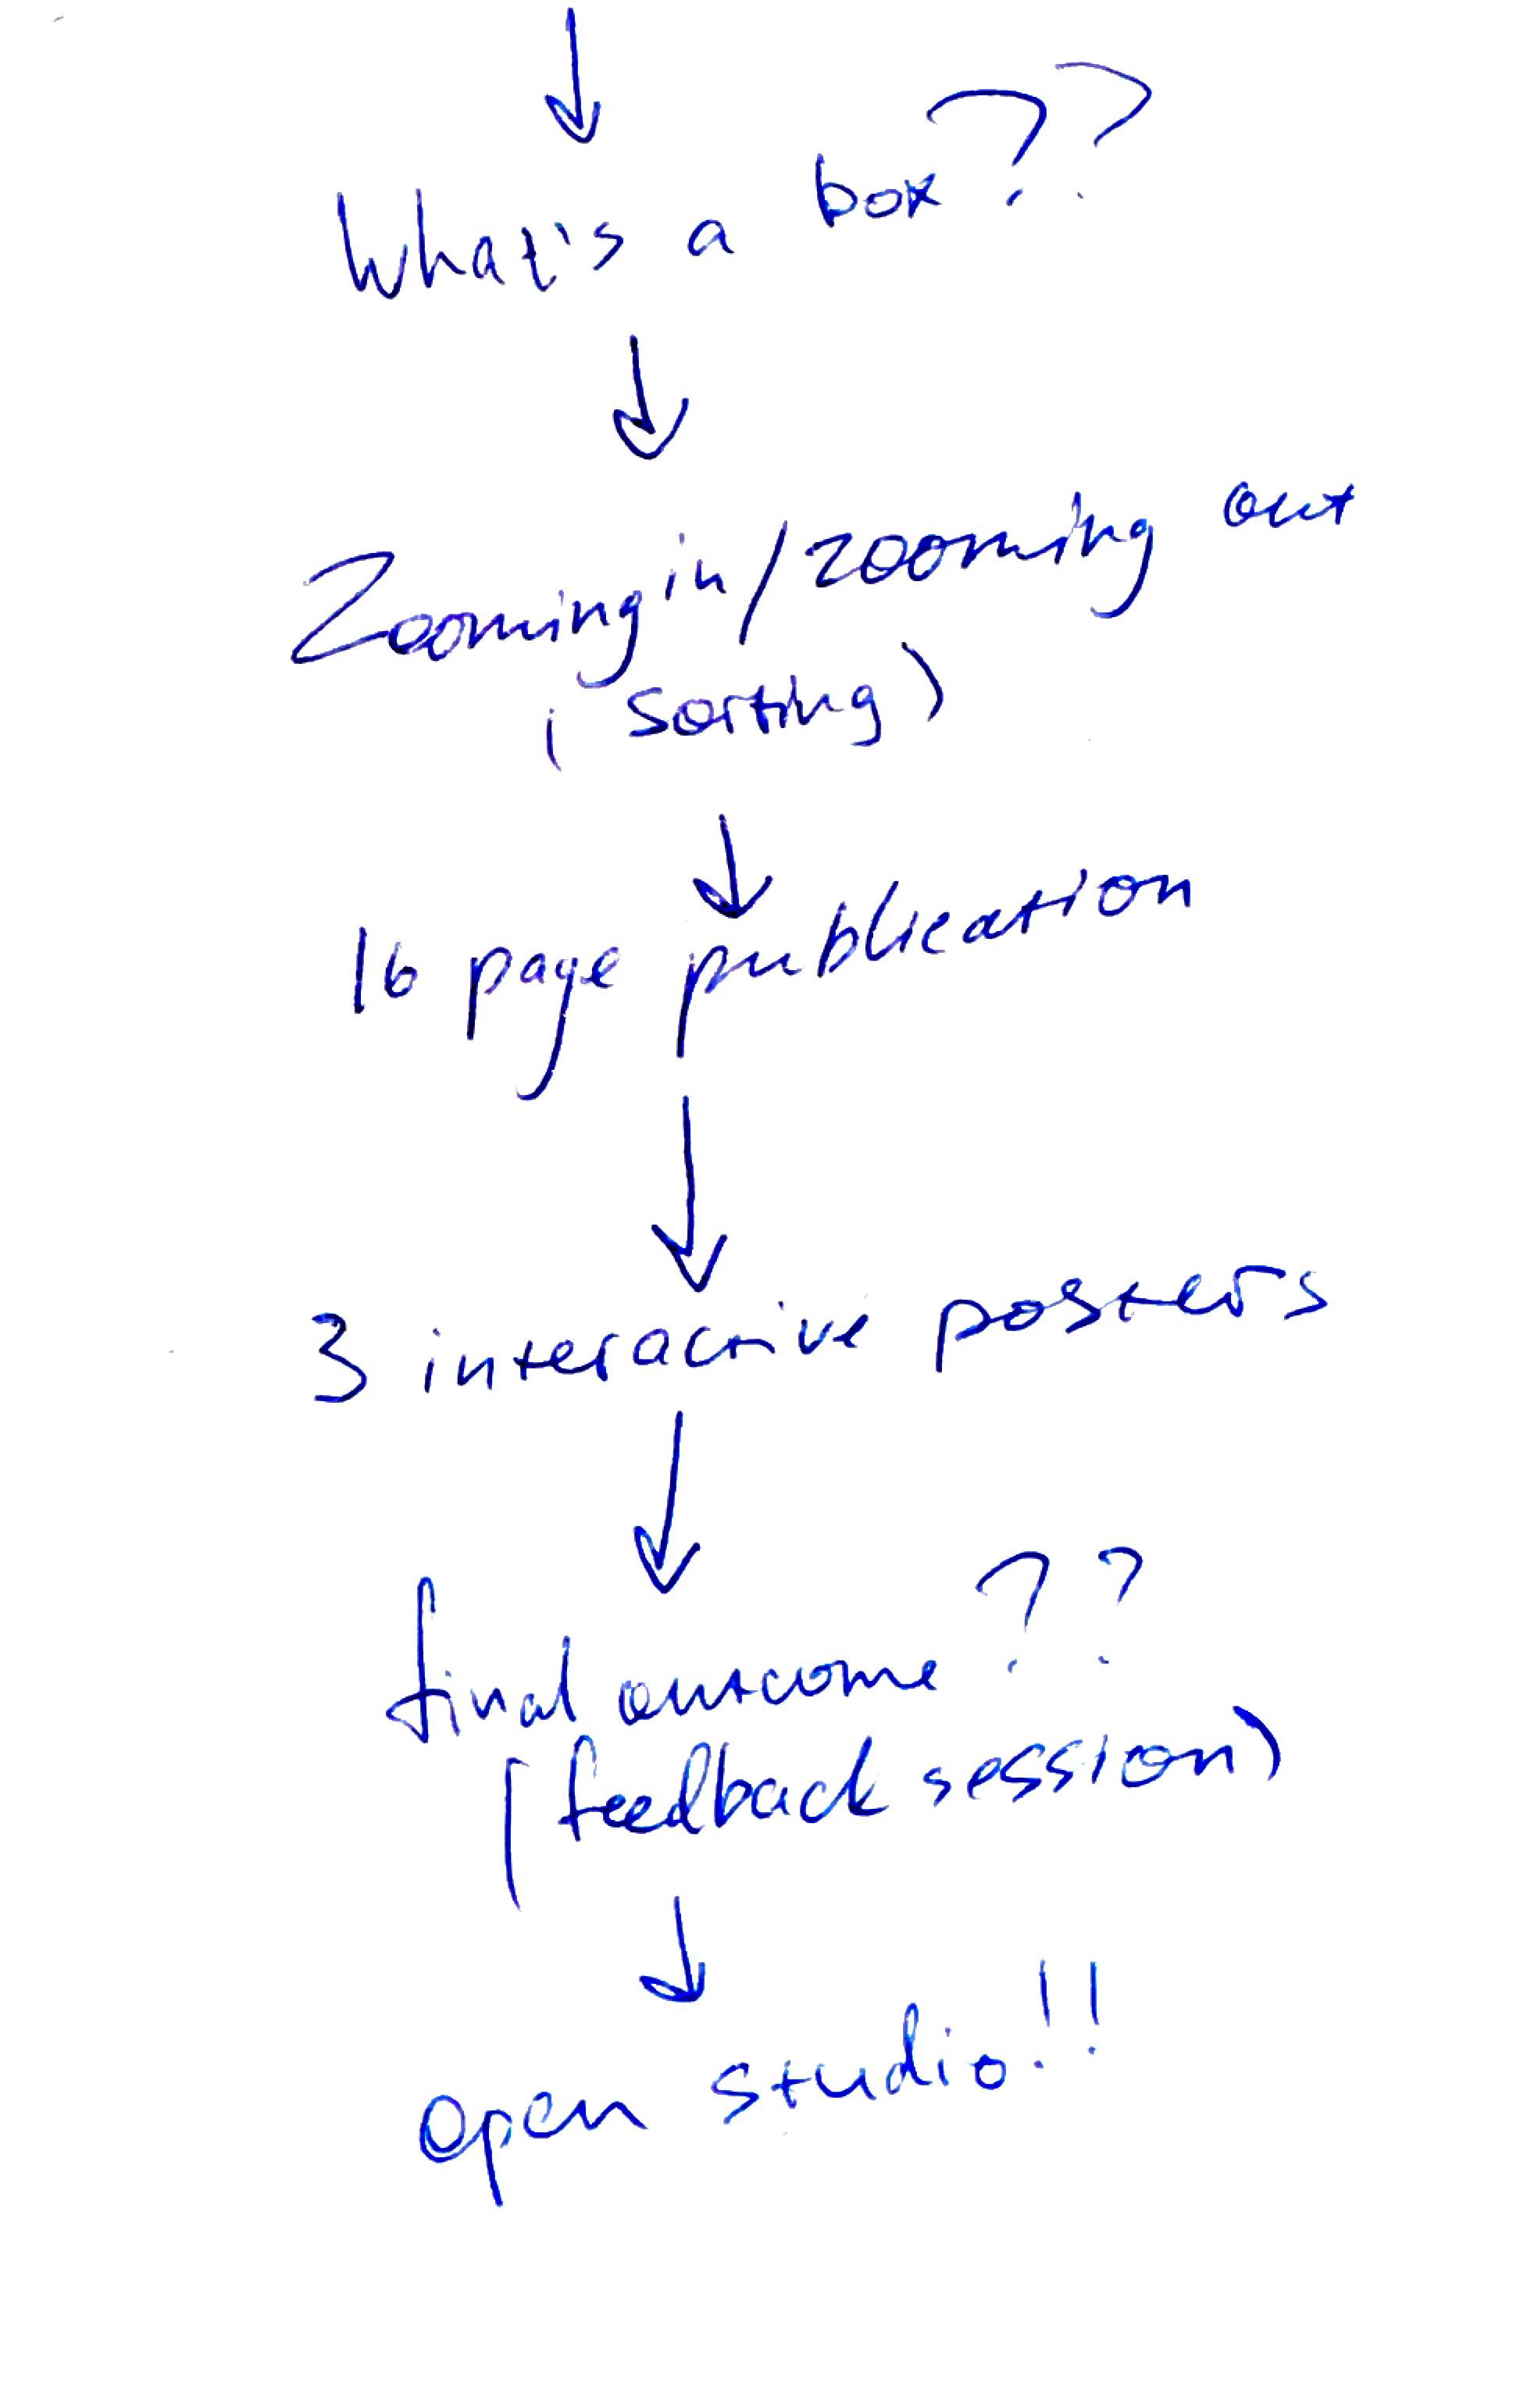 What's a box??
Zooming in/zooming out
(sorting)
16 page publication
3 interactive posters
final outcome??
(feedback session)
open studio!!